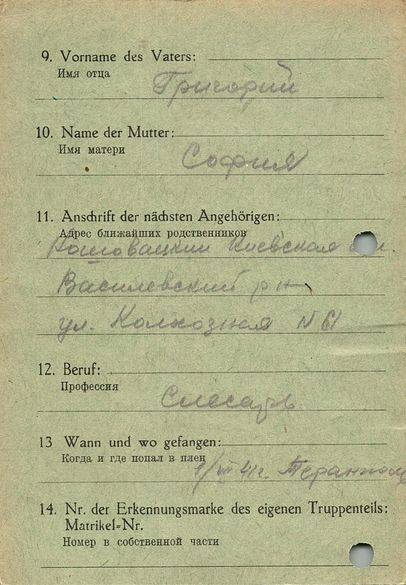 9. Vorname des Vaters:
Имя отца
Григорий
10. Name der Mutter:
Имя матери
София
11. Anschrift der nächsten Angehörigen:
Адрес ближайших родственников
Киевская
Василевский р-н
ул. Колхозная N 61
12. Beruf:
Профессия
Слесарь
13 Wann und wo gefangen:
Когда и где попал в плен
41г.
14. Nr. der Erkennungsmarke des eigenen Truppenteils:
Matrikel-Nr.
Номер в собственной части